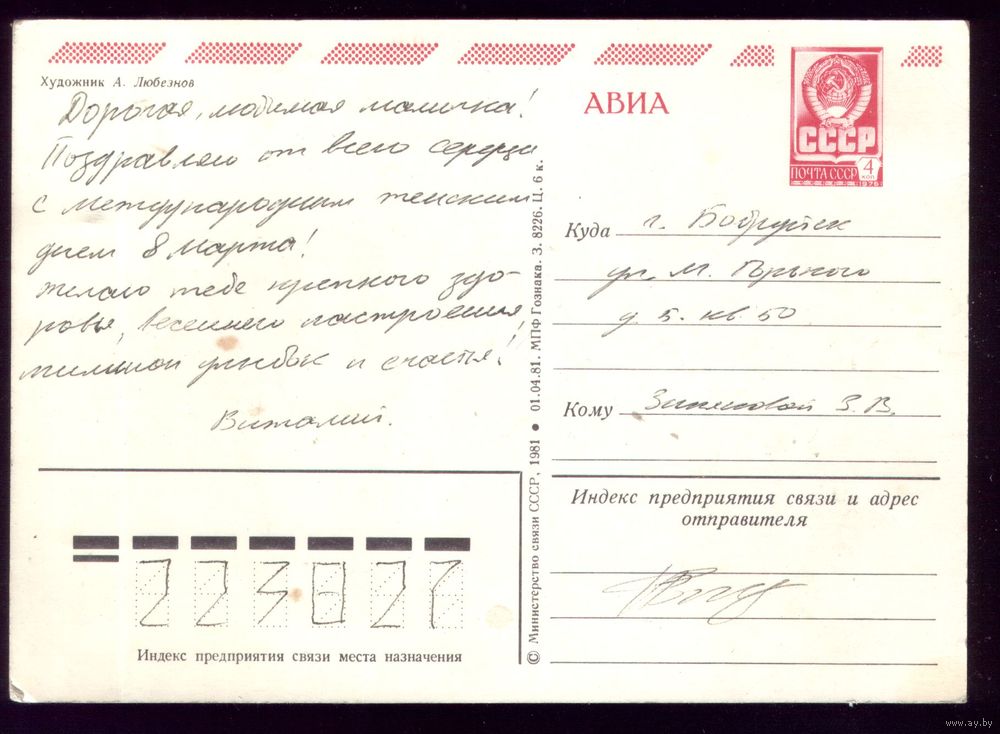 Художник А. Любезнов
АВИА
СССР
ПОЧТА СССР
4
КОП
1976
Дорогая, любимая мамочка!
Поздравляю от всего сердца
с международным женским
днем 8 марта!
желаю тебе крепкого здо-
ровья, весеннего настроения,
миллион улыбок и счастья!
Виталий.
Куда г. Бобруйск
ул. М. Горького
д. 5. кв. 50
Кому З. В.
© Министерство связи СССР, 1981 ● 01.04.81. МПФ Гознака. З. 8226. Ц. 6 к.
Индекс предприятия связи и адрес
отправителя
Индекс предприятия связи места назначения
www.ay.by